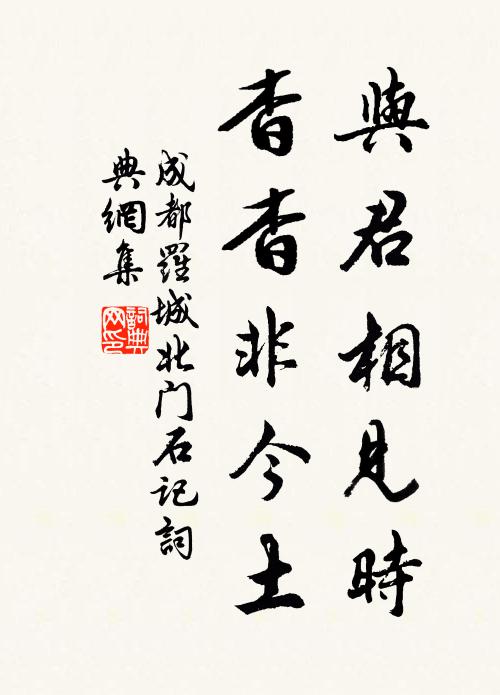 與君相見時
杳杳非今土
成都羅城北门石記詞
典網集
詞典
网印